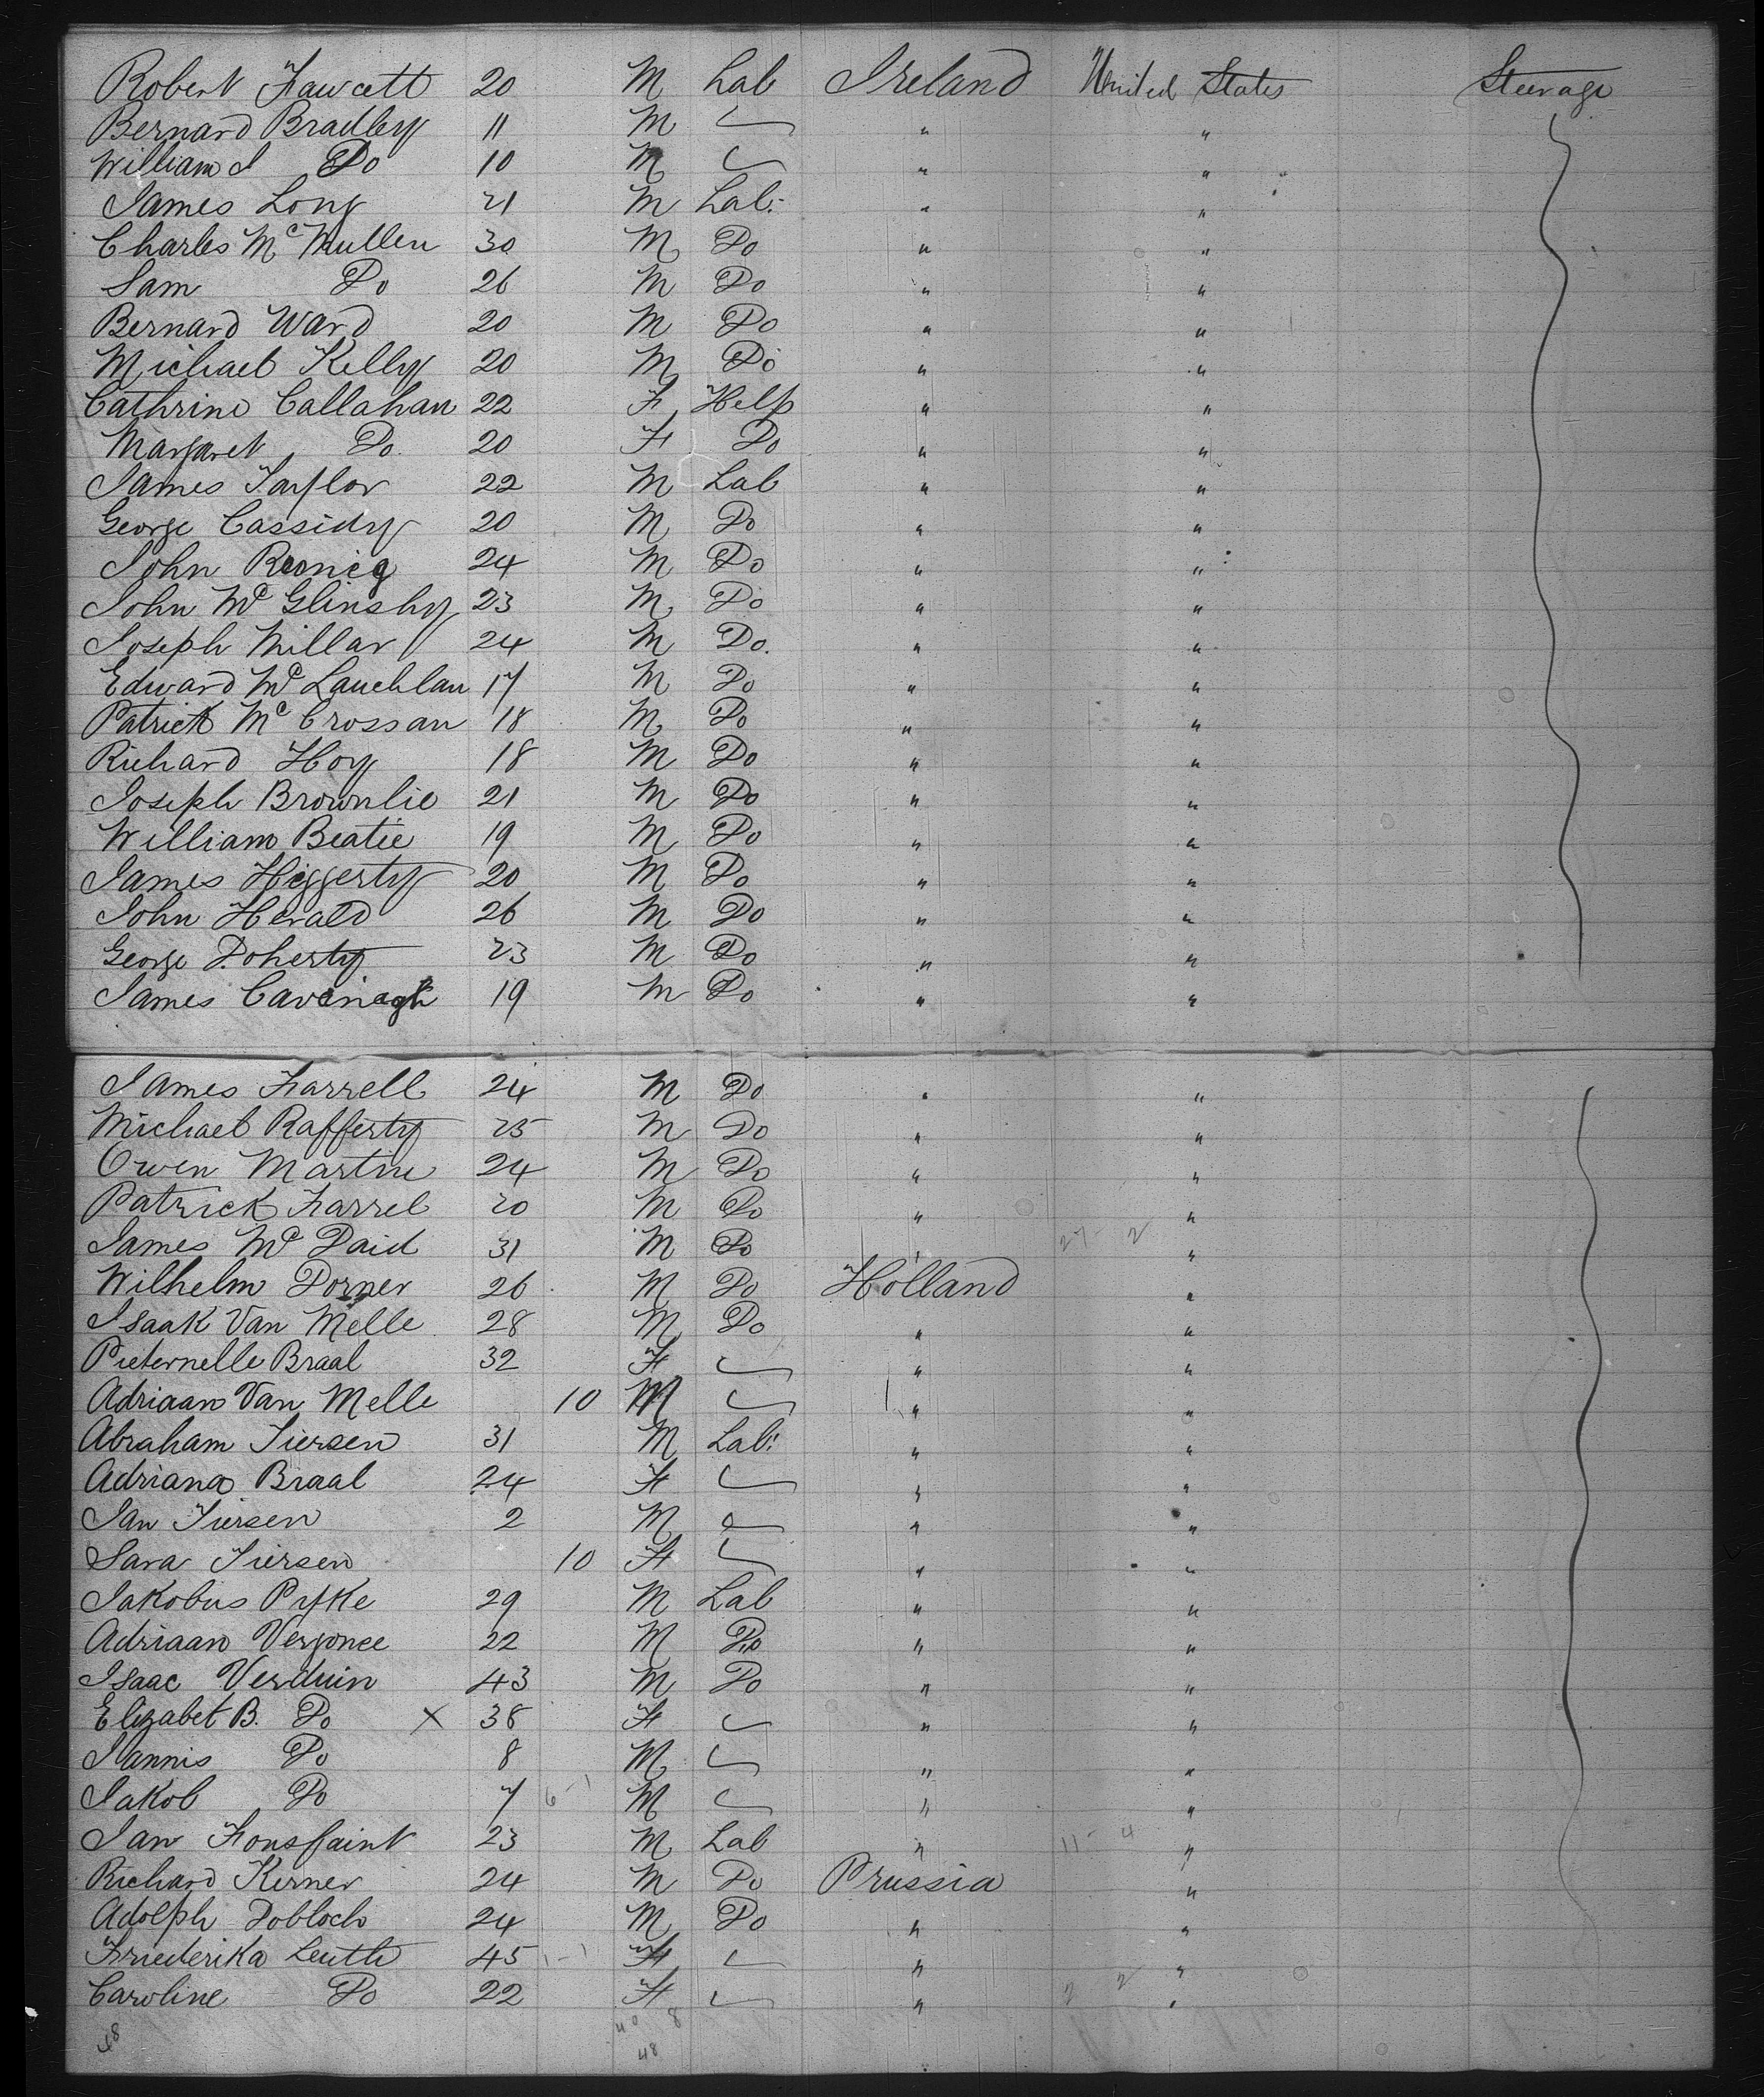 Robert Fawcett 20 M Lab Ireland United States Steerage
Bernard Bradley 11 M " "
William J Do 10 M " "
James Long 21 M Lab: " "
Charles McMullen 30 M Do " "
Sam Do 26 M Do " "
Bernard Ward 20 M Do " "
Michael Kelly 20 M Do " "
Cathrine Callahan 22 F Help " "
Margaret Do 20 F Do " "
James Taylor 22 M Lab " "
George Cassidy 20 M Do " "
John 24 M Do " "
John McGlinshy 23 M Do " "
Joseph Millar 24 M Do. " "
Edward McLauchlan 17 M Do " "
Patrick McCrossan 18 M Do " "
Richard Hoy 18 M Do " "
Joseph Brownlie 21 M Do " "
William Beatie 19 M Do " "
James Higgerty 20 M Do " "
John Herald 26 M Do " "
George Doherty 23 M Do " "
James Cavenagh 19 M Do " "
James Farrell 24 M Do " "
Michael Rafferty 25 M Do " "
Owen Martin 24 M Do " "
Patrick Farrel 20 M Do " "
James McDaid 31 M Do " 27- 2 "
Wilhelm Dorner 26 M Do Holland "
Isaak Van Melle 28 M Do " "
Pieternelle Braal 32 F " "
Adriaan Van Melle 10 M " "
Abraham Tiersen 31 M Lab: " "
Adriana Braal 24 F " "
Jan Tiersen 2 M " "
Sara Tiersen 10 F " "
Jakobus Pyke 29 M Lab " "
Adriaan Vergonee 22 M Do " "
Isaac Verduin 43 M Do " "
Elizabet B. Do X 38 F " "
Jannis Do 8 M " "
Jakob Do 7 6-1 M " "
Jan 23 M Lab " 11- 4 "
Richard Kerner 24 M Do Prussia "
Adolph Dobloch 24 M Do " "
Friederika Leuth 45 1-1 F " "
Caroline Do 22 F " 2 2 "
48 40 8
48